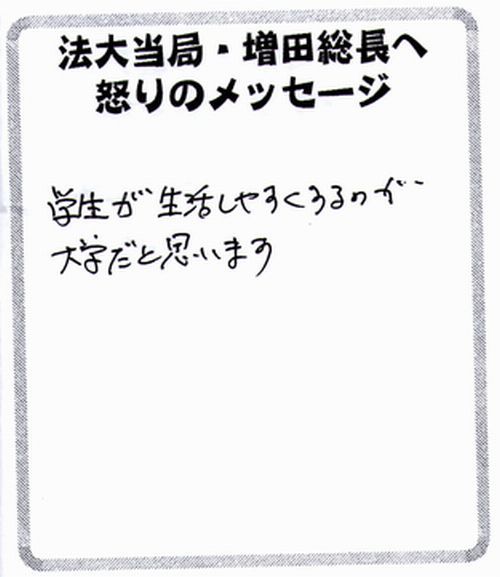 法大当局・増田総長へ
怒りのメッセージ
学生が生活しやすくするのが
大学だと思います